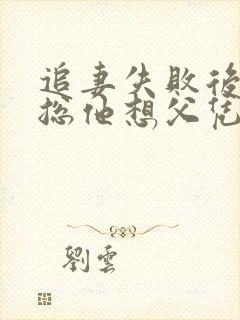 追妻失敗後
總他想父凭
劉雲